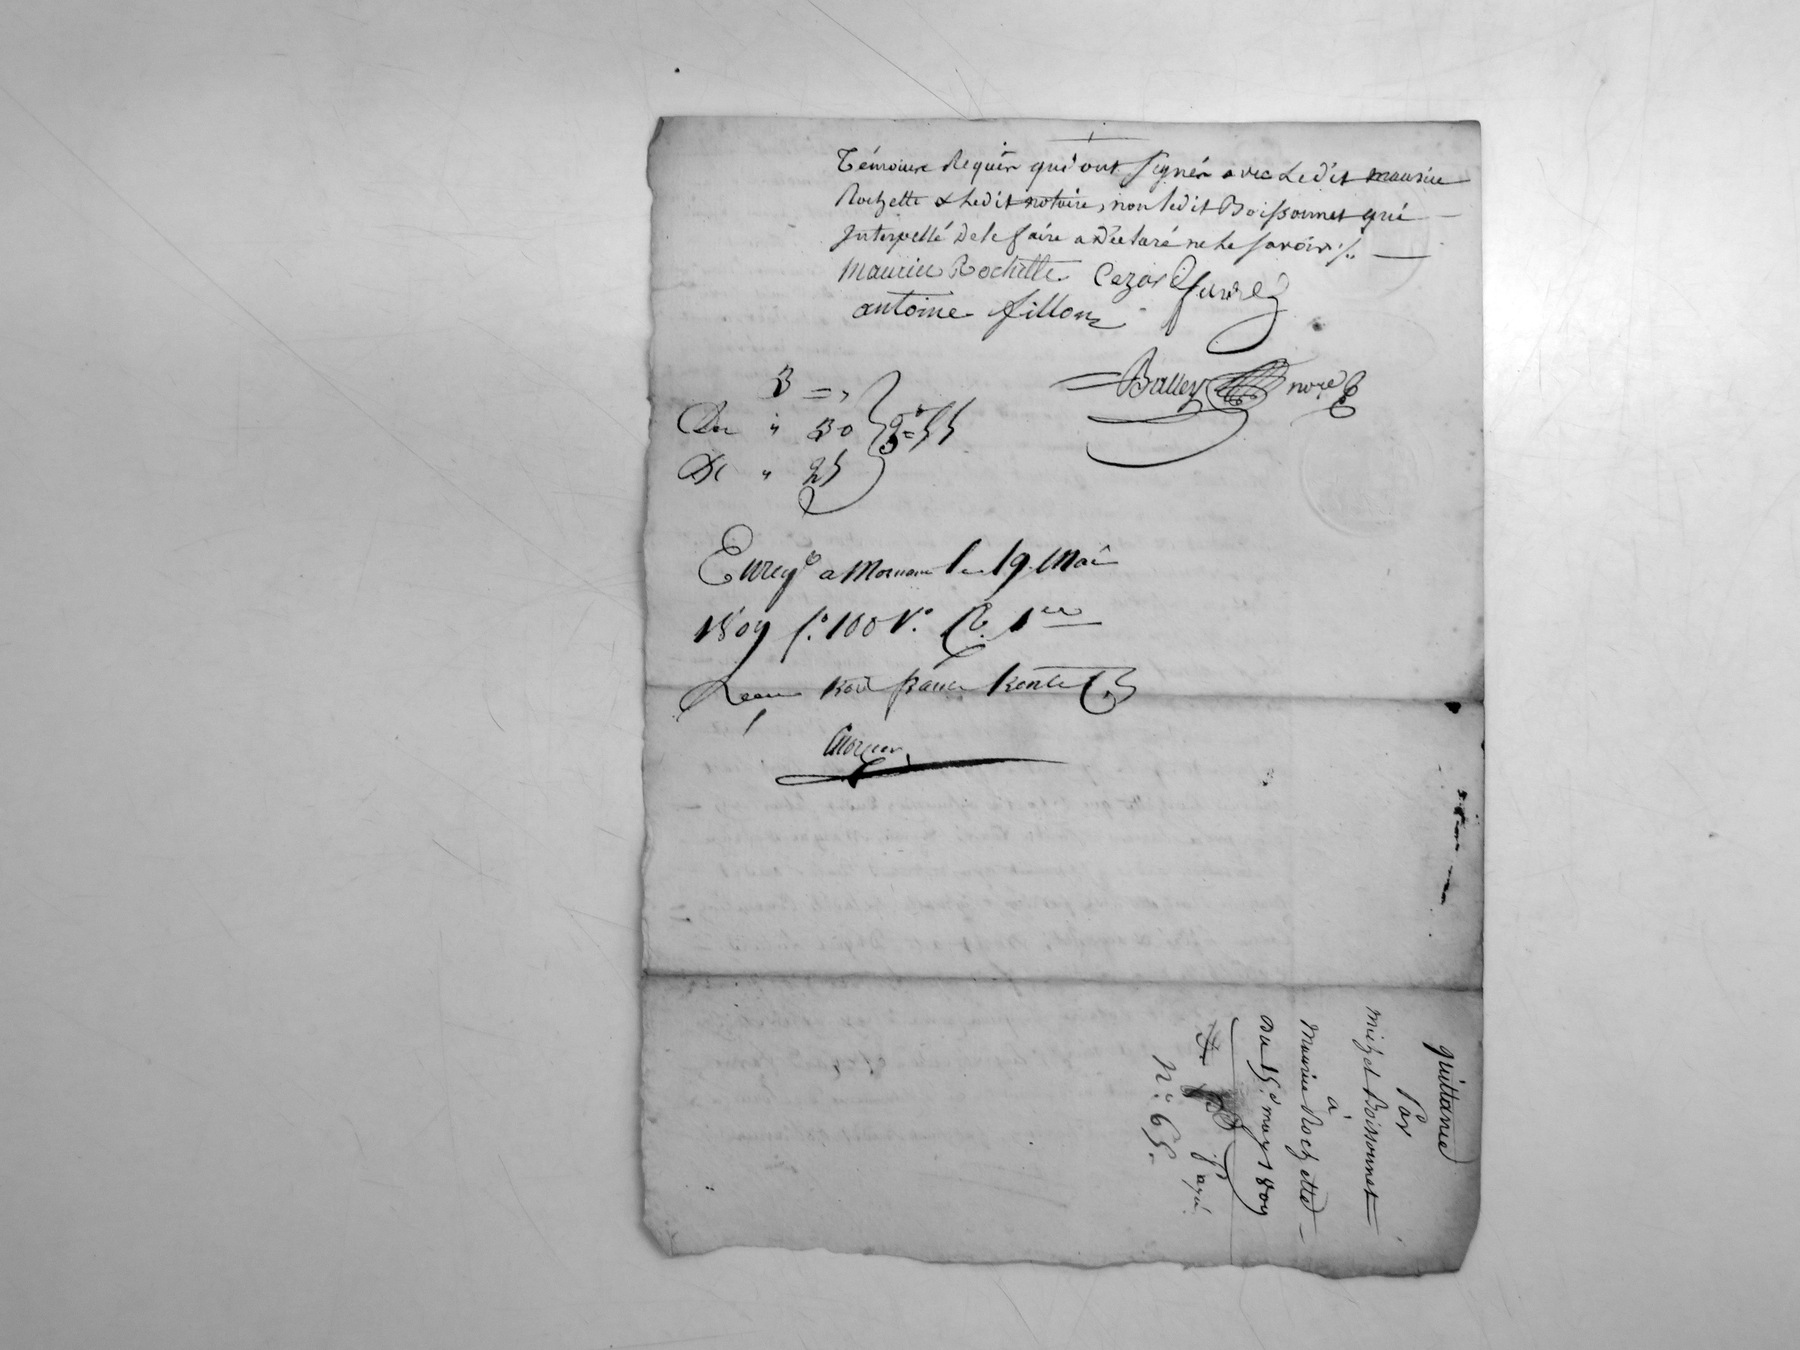 Témoins Requis qui ont signés avec Ledit maurice
Rochette & Ledit notaire, non ledit Boissonnet qui
Interpellé de le faire a déclaré ne le savoir %.
maurice Rochette Cezar
antoine fillon
Balley nore
3 = ,
Du " 30
De " 25
Enregé a Mornan le 19. Mai
1809 f.o 100 V.o C. 1er
Recu trois francs trente C.
quittance
Par
michel Boissonnet
à
Maurice Rochette
du 15.e may 1809
payé
N.o 65.